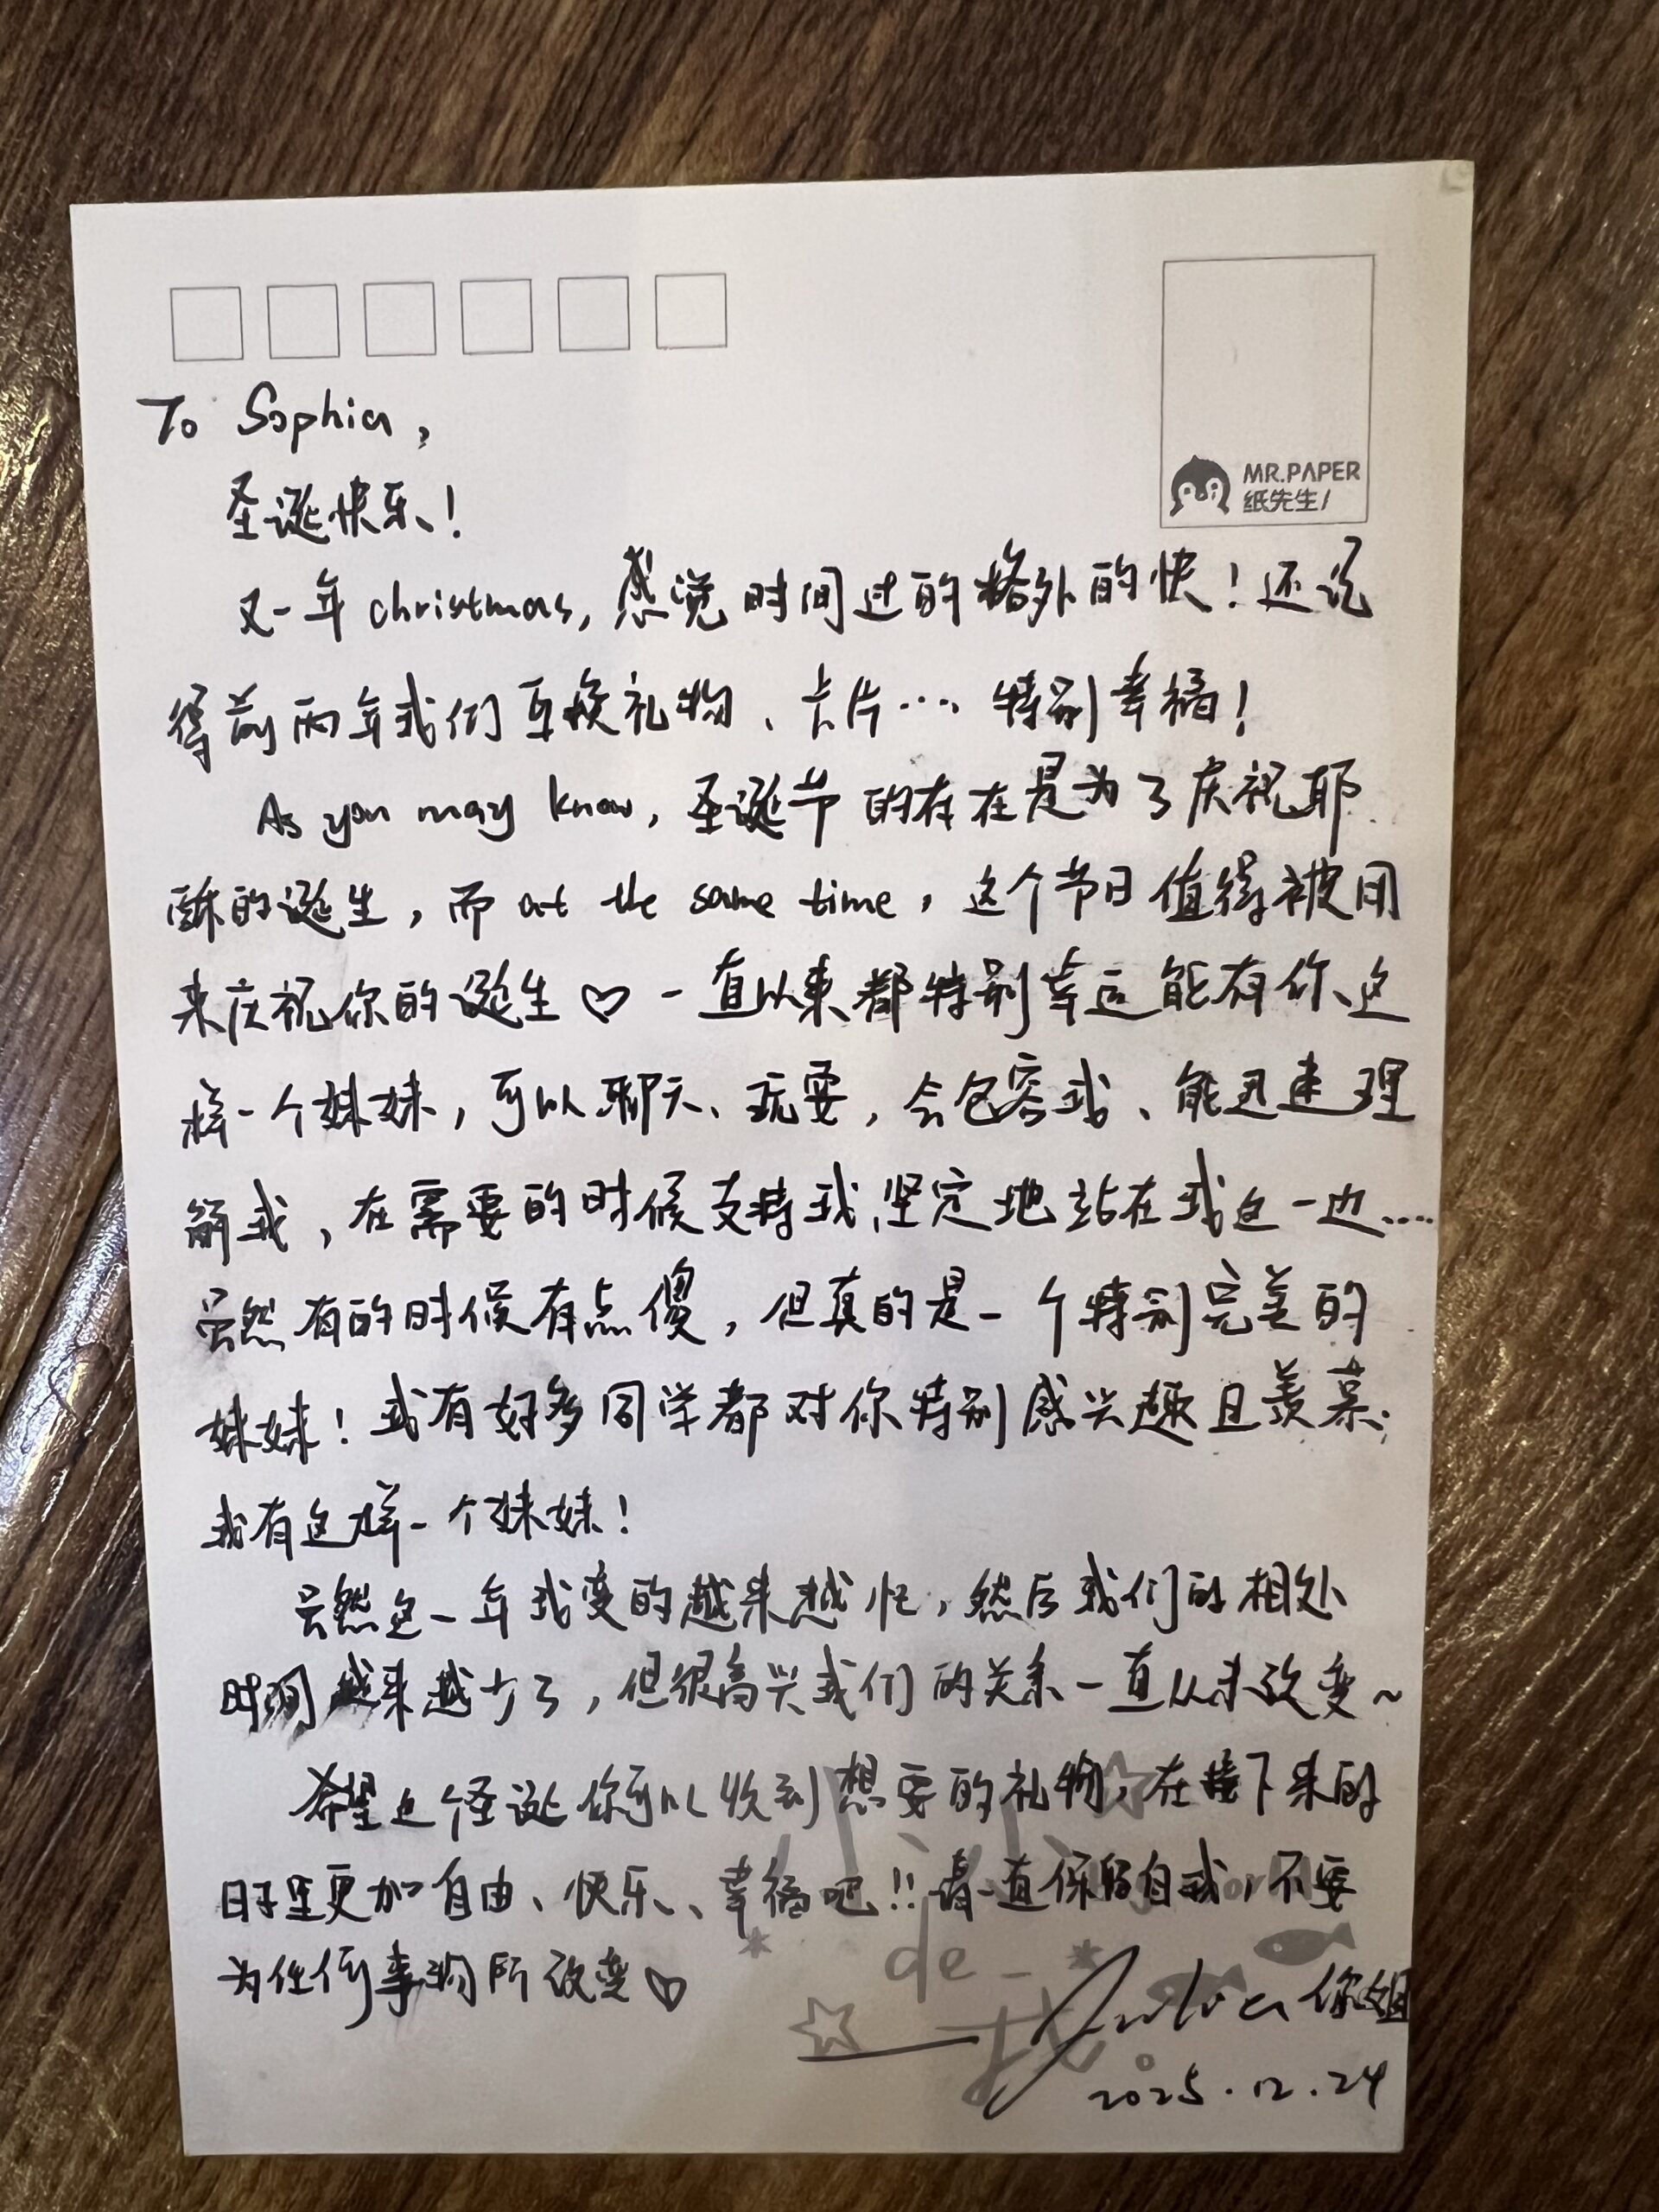 MR.PAPER
纸先生/
To Sophia,
圣诞快乐!
又一年 christmas, 感觉时间过的格外的快!还记
得前两年我们互换礼物、卡片…. 特别幸福!
As you may know, 圣诞节的存在是为了庆祝耶
稣的诞生,而 at the same time,这个节日值得被用
来庆祝你的诞生♡ 一直以来都特别幸运能有你这
样一个妹妹,可以聊天、玩耍,会包容我、能迅速理
解我,在需要的时候支持我,坚定地站在我这一边....
虽然有的时候有点傻,但真的是一个特别完美的
妹妹!我有好多同学都对你特别感兴趣且羡慕
我有这样一个妹妹!
虽然这一年我变的越来越忙,然后我们的相处
时间越来越少了,但很高兴我们的关系一直从未改变~
希望这个圣诞你可以收到想要的礼物,在接下来的
日子里更加自由、快乐、幸福吧!!请一直保留自我,不要
为任何事物所改变♡
de
我。
你姐
2025.12.24